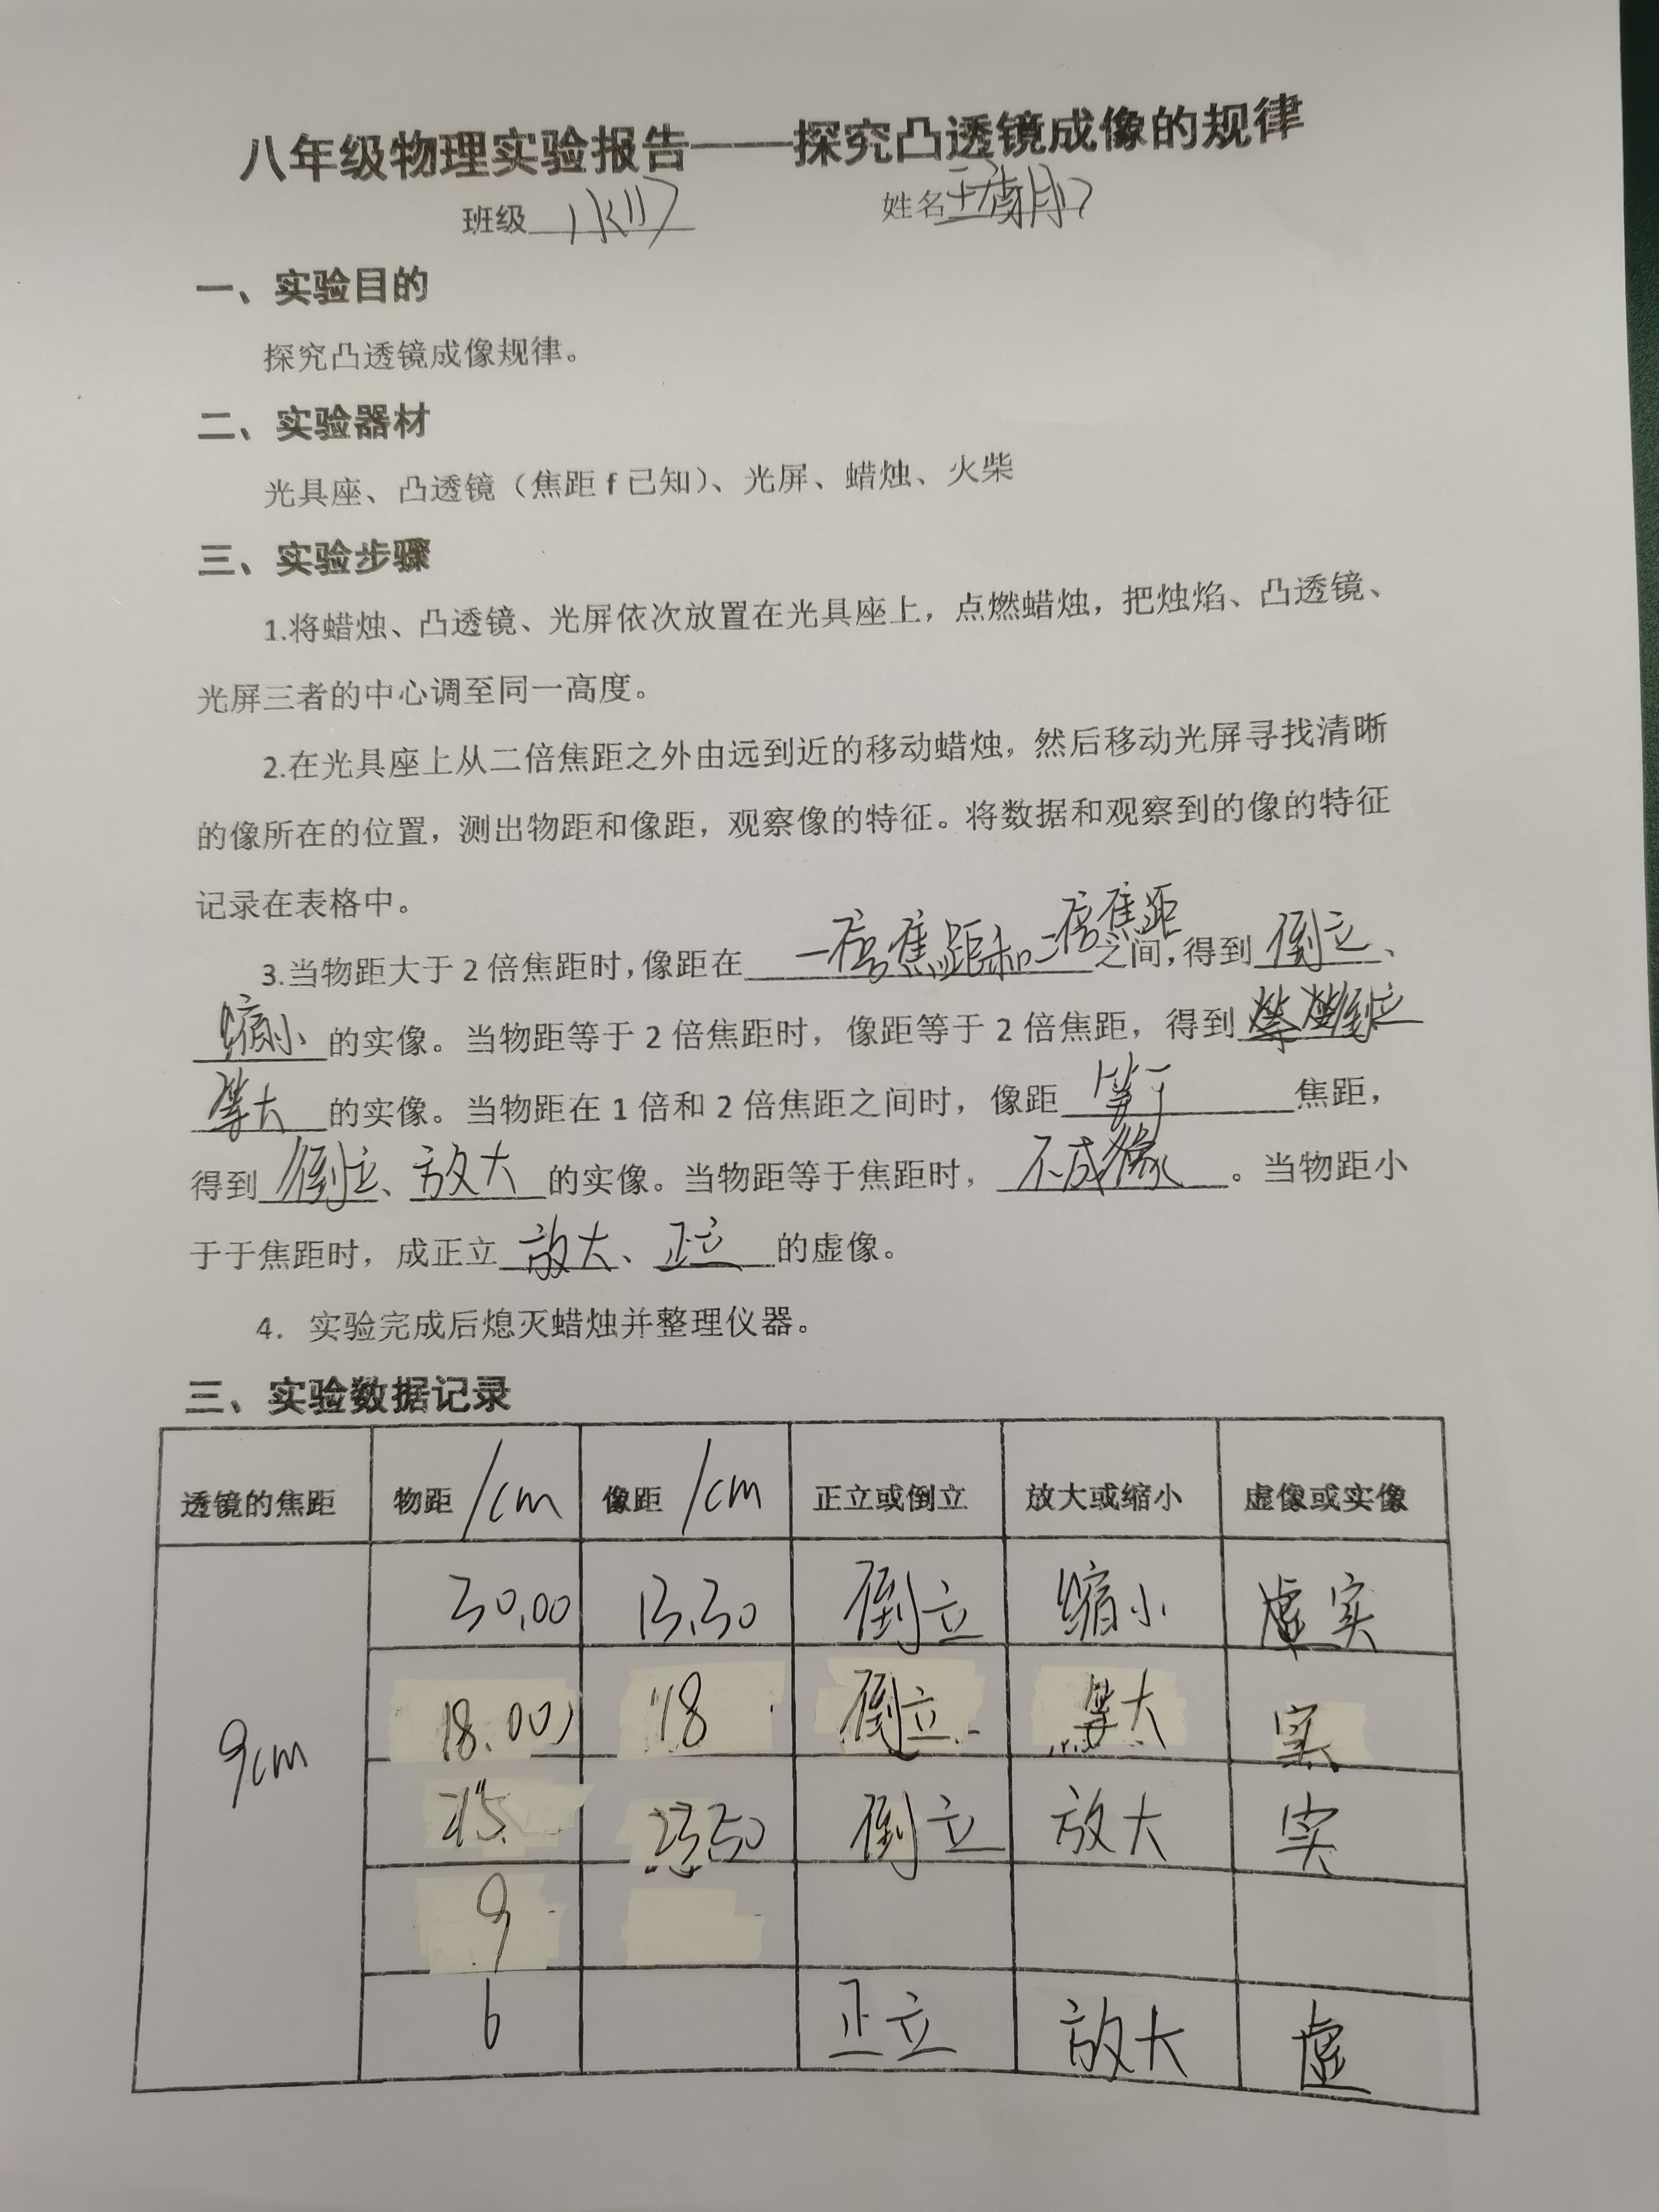 八年级物理实验报告——探究凸透镜成像的规律
班级 姓名
一、实验目的
探究凸透镜成像规律。
二、实验器材
光具座、凸透镜（焦距f已知）、光屏、蜡烛、火柴
三、实验步骤
1.将蜡烛、凸透镜、光屏依次放置在光具座上，点燃蜡烛，把烛焰、凸透镜、
光屏三者的中心调至同一高度。
2.在光具座上从二倍焦距之外由远到近的移动蜡烛，然后移动光屏寻找清晰
的像所在的位置，测出物距和像距，观察像的特征。将数据和观察到的像的特征
记录在表格中。
3.当物距大于2倍焦距时，像距在一倍焦距和二倍焦距之间，得到倒立、
缩小的实像。当物距等于2倍焦距时，像距等于2倍焦距，得到倒立
等大的实像。当物距在1倍和2倍焦距之间时，像距焦距，
得到倒立、放大的实像。当物距等于焦距时，不成像。当物距小
于于焦距时，成正立放大、正立的虚像。
4. 实验完成后熄灭蜡烛并整理仪器。
三、实验数据记录
透镜的焦距 物距/cm 像距/cm 正立或倒立 放大或缩小 虚像或实像
9cm 30.00 13.30 倒立 缩小 实
18.00 18 倒立 等大 实
15 23.50 倒立 放大 实
9
6 正立 放大 虚